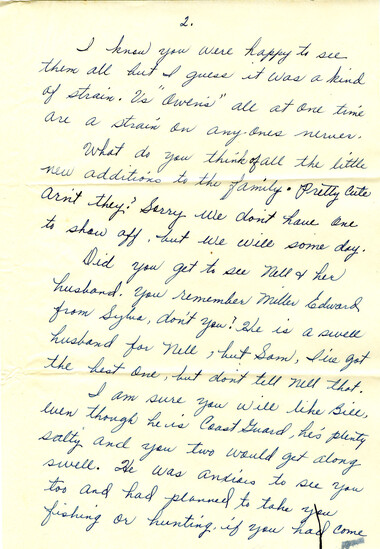 2.
I know you were happy to see
them all but I guess it was a kind
of strain. Us "Owens" all at one time
are a strain on any-ones nerves.
What do you think of all the little
new additions to the family. Pretty Cute
arn't they? Sorry we don't have one
to show off, but we will some day.
Did you get to see Nell & her
husband. You remember Miller Edward
from Sylva, don't you? He is a swell
husband for Nell, but Sam, I've got
the best one, but don't tell Nell that.
I am sure you will like Bill,
even though he is Coast Guard, he's plenty
salty and you two would get along
swell. He was anxious to see you
too and had planned to take you
fishing or hunting, if you had come